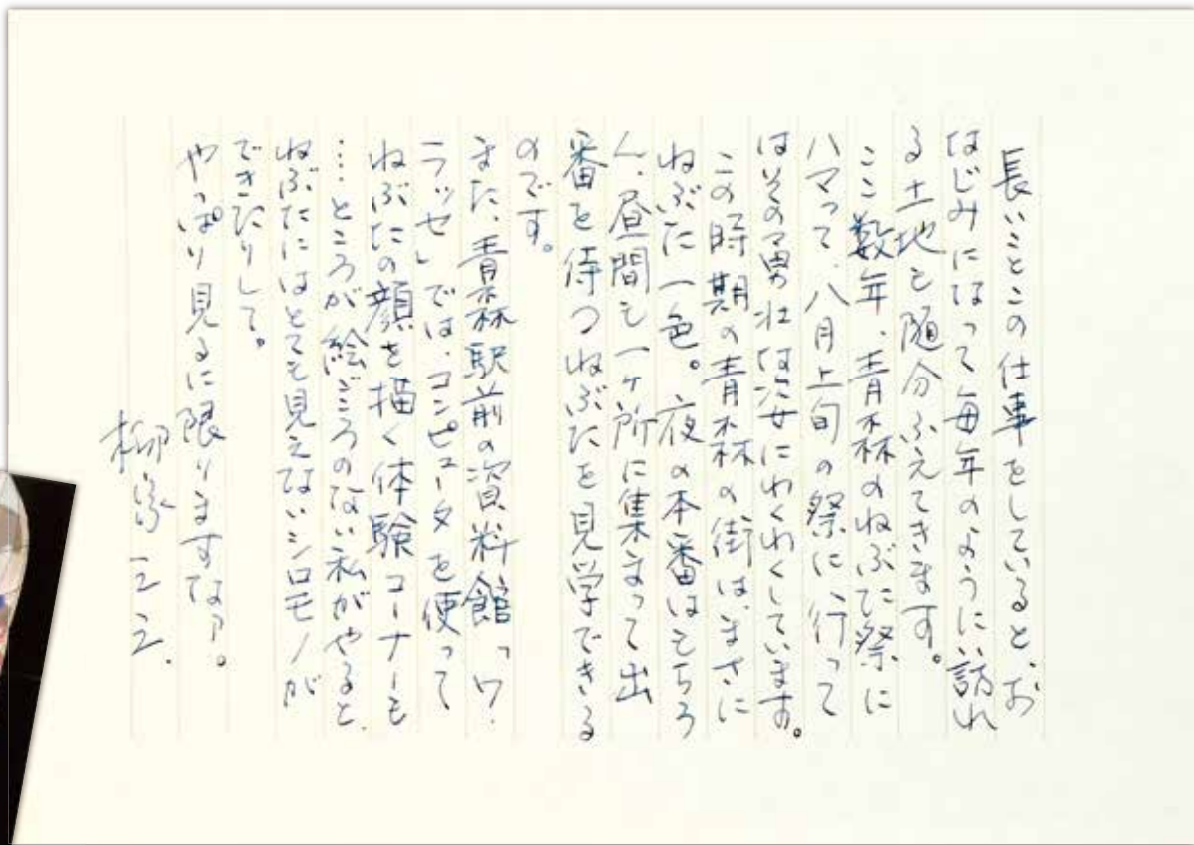 長いことこの仕事をしていると、お
なじみになって毎年のように訪れ
る土地も随分ふえてきます。
ここ数年、青森のねぶた祭に
ハマって、八月上旬の祭に行って
はその勇壮な姿にわくわくしています。
この時期の青森の街は、まさに
ねぶた一色。夜の本番はもちろ
ん、昼間も一ヶ所に集まって出
番を待つねぶたを見学できる
のです。
また、青森駅前の資料館「ワ・
ラッセ」では、コンピュータを使って
ねぶたの顔を描く体験コーナーも
…ところが絵ごころのない私がやると、
ねぶたにはとても見えないシロモノが
できたりして。
やっぱり見るに限りますなァ。
柳家一之之.